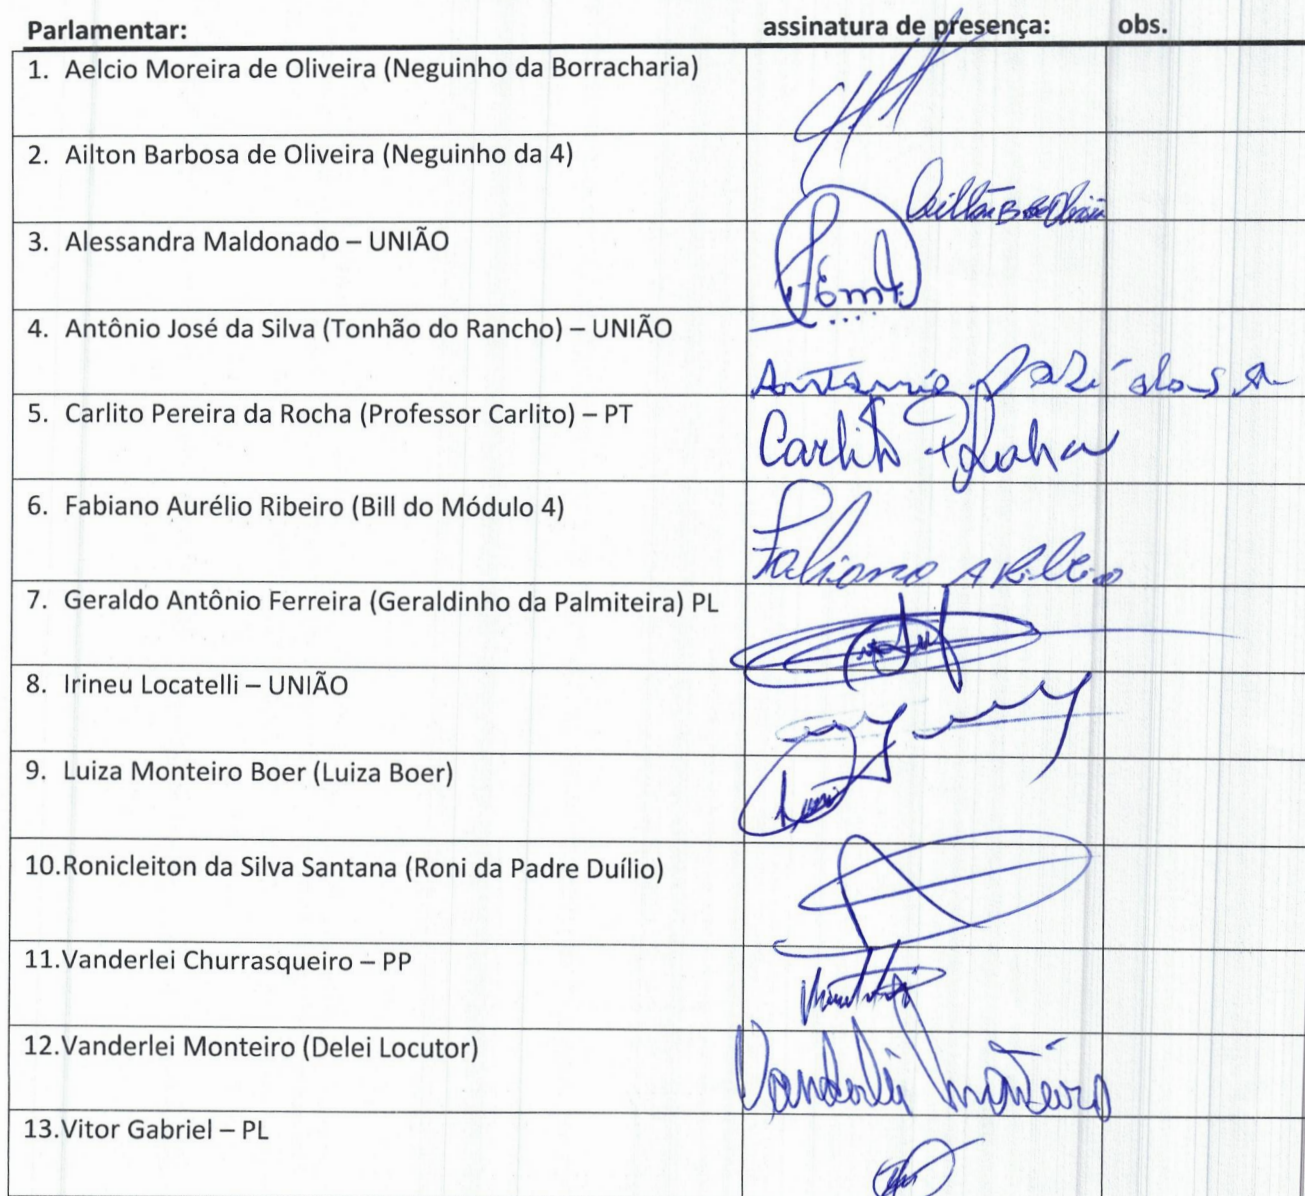 Parlamentar: assinatura de presença: obs.
1. Aelcio Moreira de Oliveira (Neguinho da Borracharia)
2. Ailton Barbosa de Oliveira (Neguinho da 4)
3. Alessandra Maldonado – UNIÃO
4. Antônio José da Silva (Tonhão do Rancho) – UNIÃO
5. Carlito Pereira da Rocha (Professor Carlito) – PT
Carlito P Rocha
6. Fabiano Aurélio Ribeiro (Bill do Módulo 4)
Fabiano A Ribeiro
7. Geraldo Antônio Ferreira (Geraldinho da Palmiteira) PL
8. Irineu Locatelli – UNIÃO
9. Luiza Monteiro Boer (Luiza Boer)
10.Ronicleiton da Silva Santana (Roni da Padre Duílio)
11.Vanderlei Churrasqueiro – PP
12.Vanderlei Monteiro (Delei Locutor)
Vanderlei Monteiro
13.Vitor Gabriel – PL